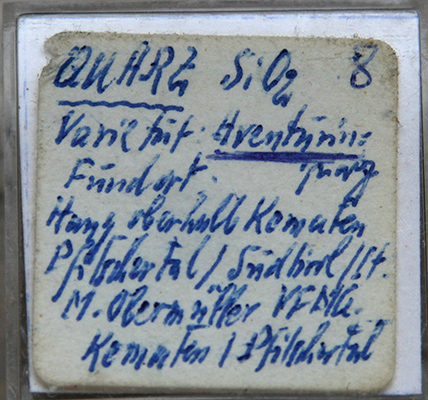 QUARZ SiO2 8
Varietät: Aventurin-
Fundort: quarz
Hang oberhalb Kematen
Pfitschertal / Südtirol / It.
M. Obermüller VFMG.
Kematen / Pfitschertal